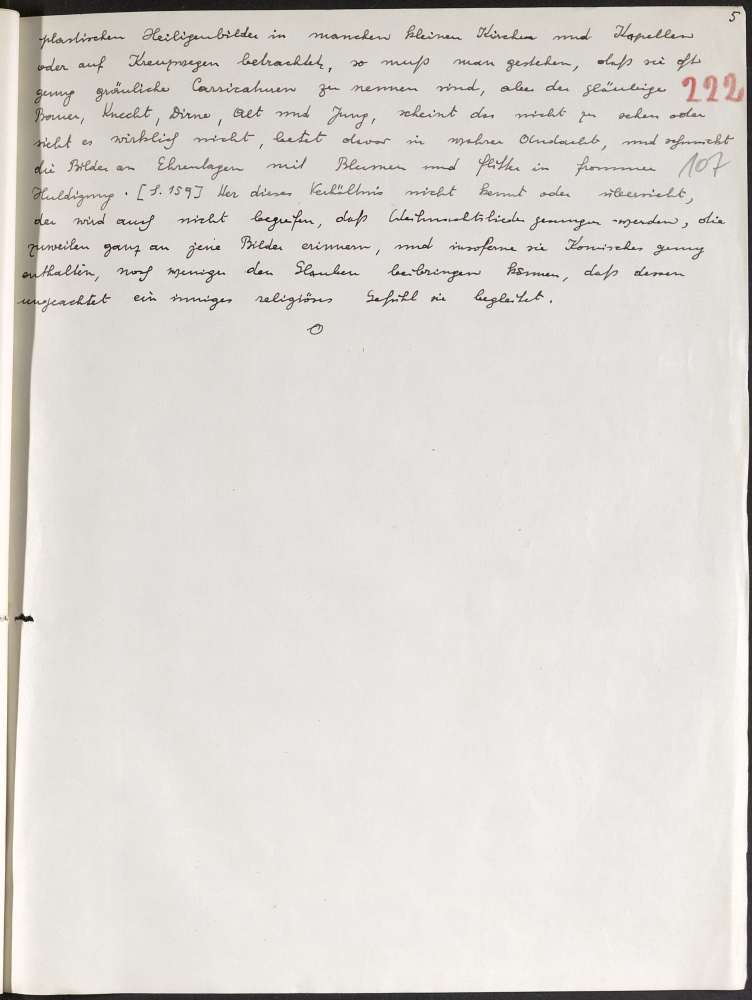 5
plastischen Heiligenbilder in manchen kleinen Kirchen und Kapellen
oder auf Kreuzwegen betrachtet, so muß man gestehen, daß sie oft
genug gräuliche Carricaturen zu nennen sind, aber der gläubige
222
Bauer, Knecht, Dirne, Alt und Jung, scheint das nicht zu sehen oder
sieht es wirklich nicht, betet davor in wahrer Andacht, und schmückt
die Bilder an Ehrentagen mit Blumen und Flitter in frommer
107
Huldigung. [S. 159] Wer dieses Verhältnis nicht kennt oder übersieht,
der wird auch nicht begreifen, daß Weihnachtslieder gesungen werden, die
zuweilen ganz an jene Bilder erinnern, und insoferne sie Komisches genug
enthalten, noch weniger den Glauben beibringen können, daß dessen
ungeachtet ein inniges religiöses Gefühl sie begleitet.